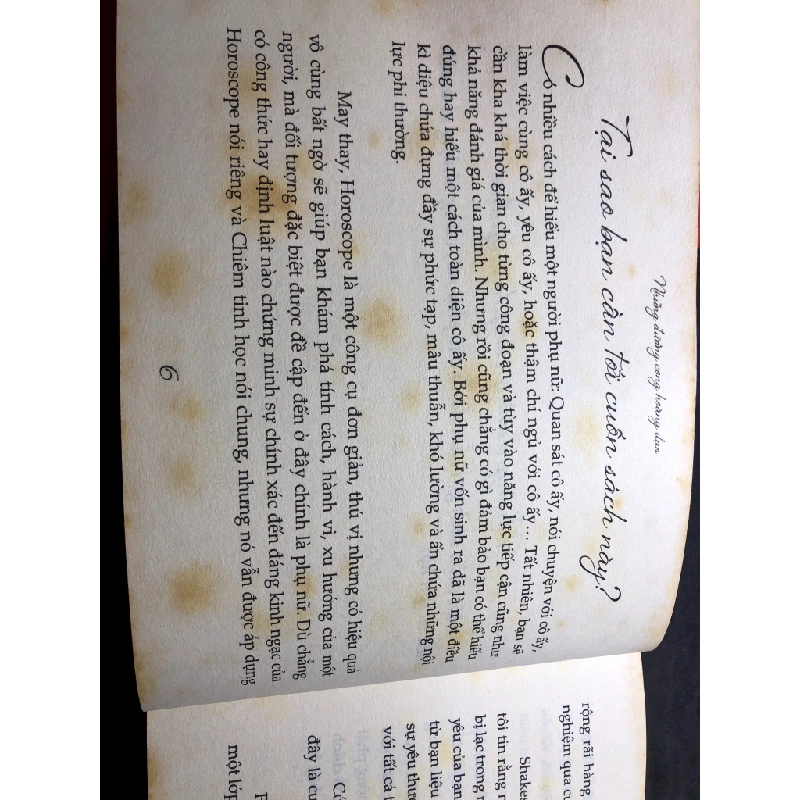 Những đường cong hoàng đạo
Tại sao bạn cần tới cuốn sách này?
Có nhiều cách để hiểu một người phụ nữ. Quan sát cô ấy, nói chuyện với cô ấy,
làm việc cùng cô ấy, yêu cô ấy, hoặc thậm chí ngủ với cô ấy... Tất nhiên, bạn sẽ
cần kha khá thời gian cho từng công đoạn và tùy vào năng lực tiếp cận cũng như
khả năng đánh giá của mình. Nhưng rồi cũng chẳng có gì đảm bảo bạn có thể hiểu
đúng hay hiểu một cách toàn diện cô ấy. Bởi phụ nữ vốn sinh ra đã là một điều
kì diệu chứa đựng đầy sự phức tạp, mâu thuẫn, khó lường và ẩn chứa những nội
lực phi thường.
May thay, Horoscope là một công cụ đơn giản, thú vị nhưng có hiệu quả
vô cùng bất ngờ sẽ giúp bạn khám phá tính cách, hành vi, xu hướng của một
người, mà đối tượng đặc biệt được đề cập đến ở đây chính là phụ nữ. Dù chẳng
có công thức hay định luật nào chứng minh sự chính xác đến đáng kinh ngạc của
Horoscope nói riêng và Chiêm tinh học nói chung, nhưng nó vẫn được áp dụng
6
rộng rãi hàng
nghiệm qua cu
Shakes
tôi tin rằng n
bị lạc trong n
yêu của bạn
từ bạn liệu
sự yêu thươ
với tất cả l
đây là cu
một lớp